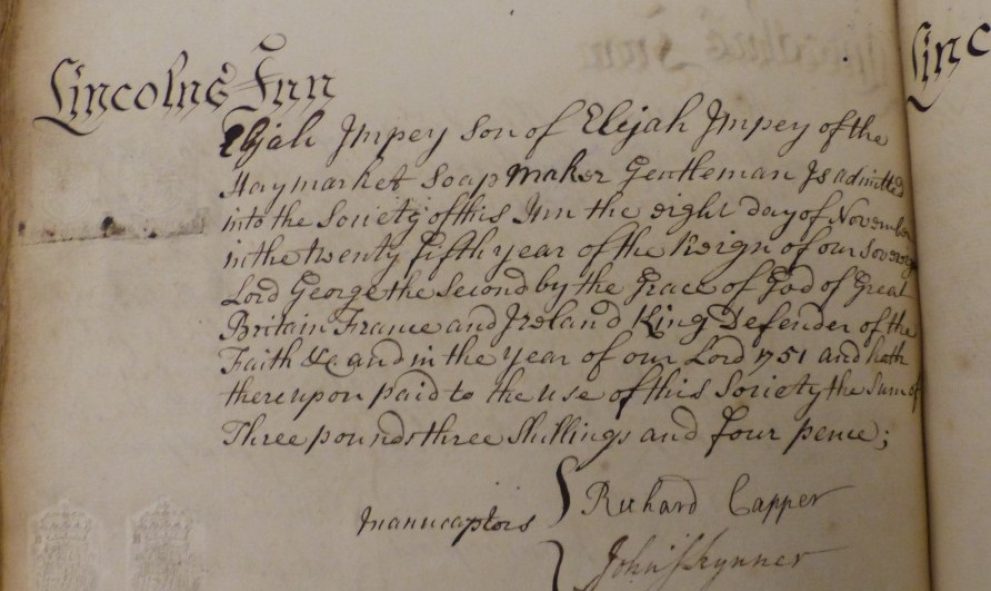 Lincolns Inn
Elijah Impey Son of Elijah Impey of the
Haymarket Soap Maker Gentleman Is admitted
into the Society of this Inn the eight day of November
in the twenty fifth year of the Reign of our Sovereign
Lord George the Second by the Grace of God of Great
Britain France and Ireland King Defender of the
Faith &c and in the year of our Lord 1751 and hath
thereupon paid to the use of this Society the Sum of
Three pounds three Shillings and four pence;
Manucaptors Richard Capper
John Skynner
Linc